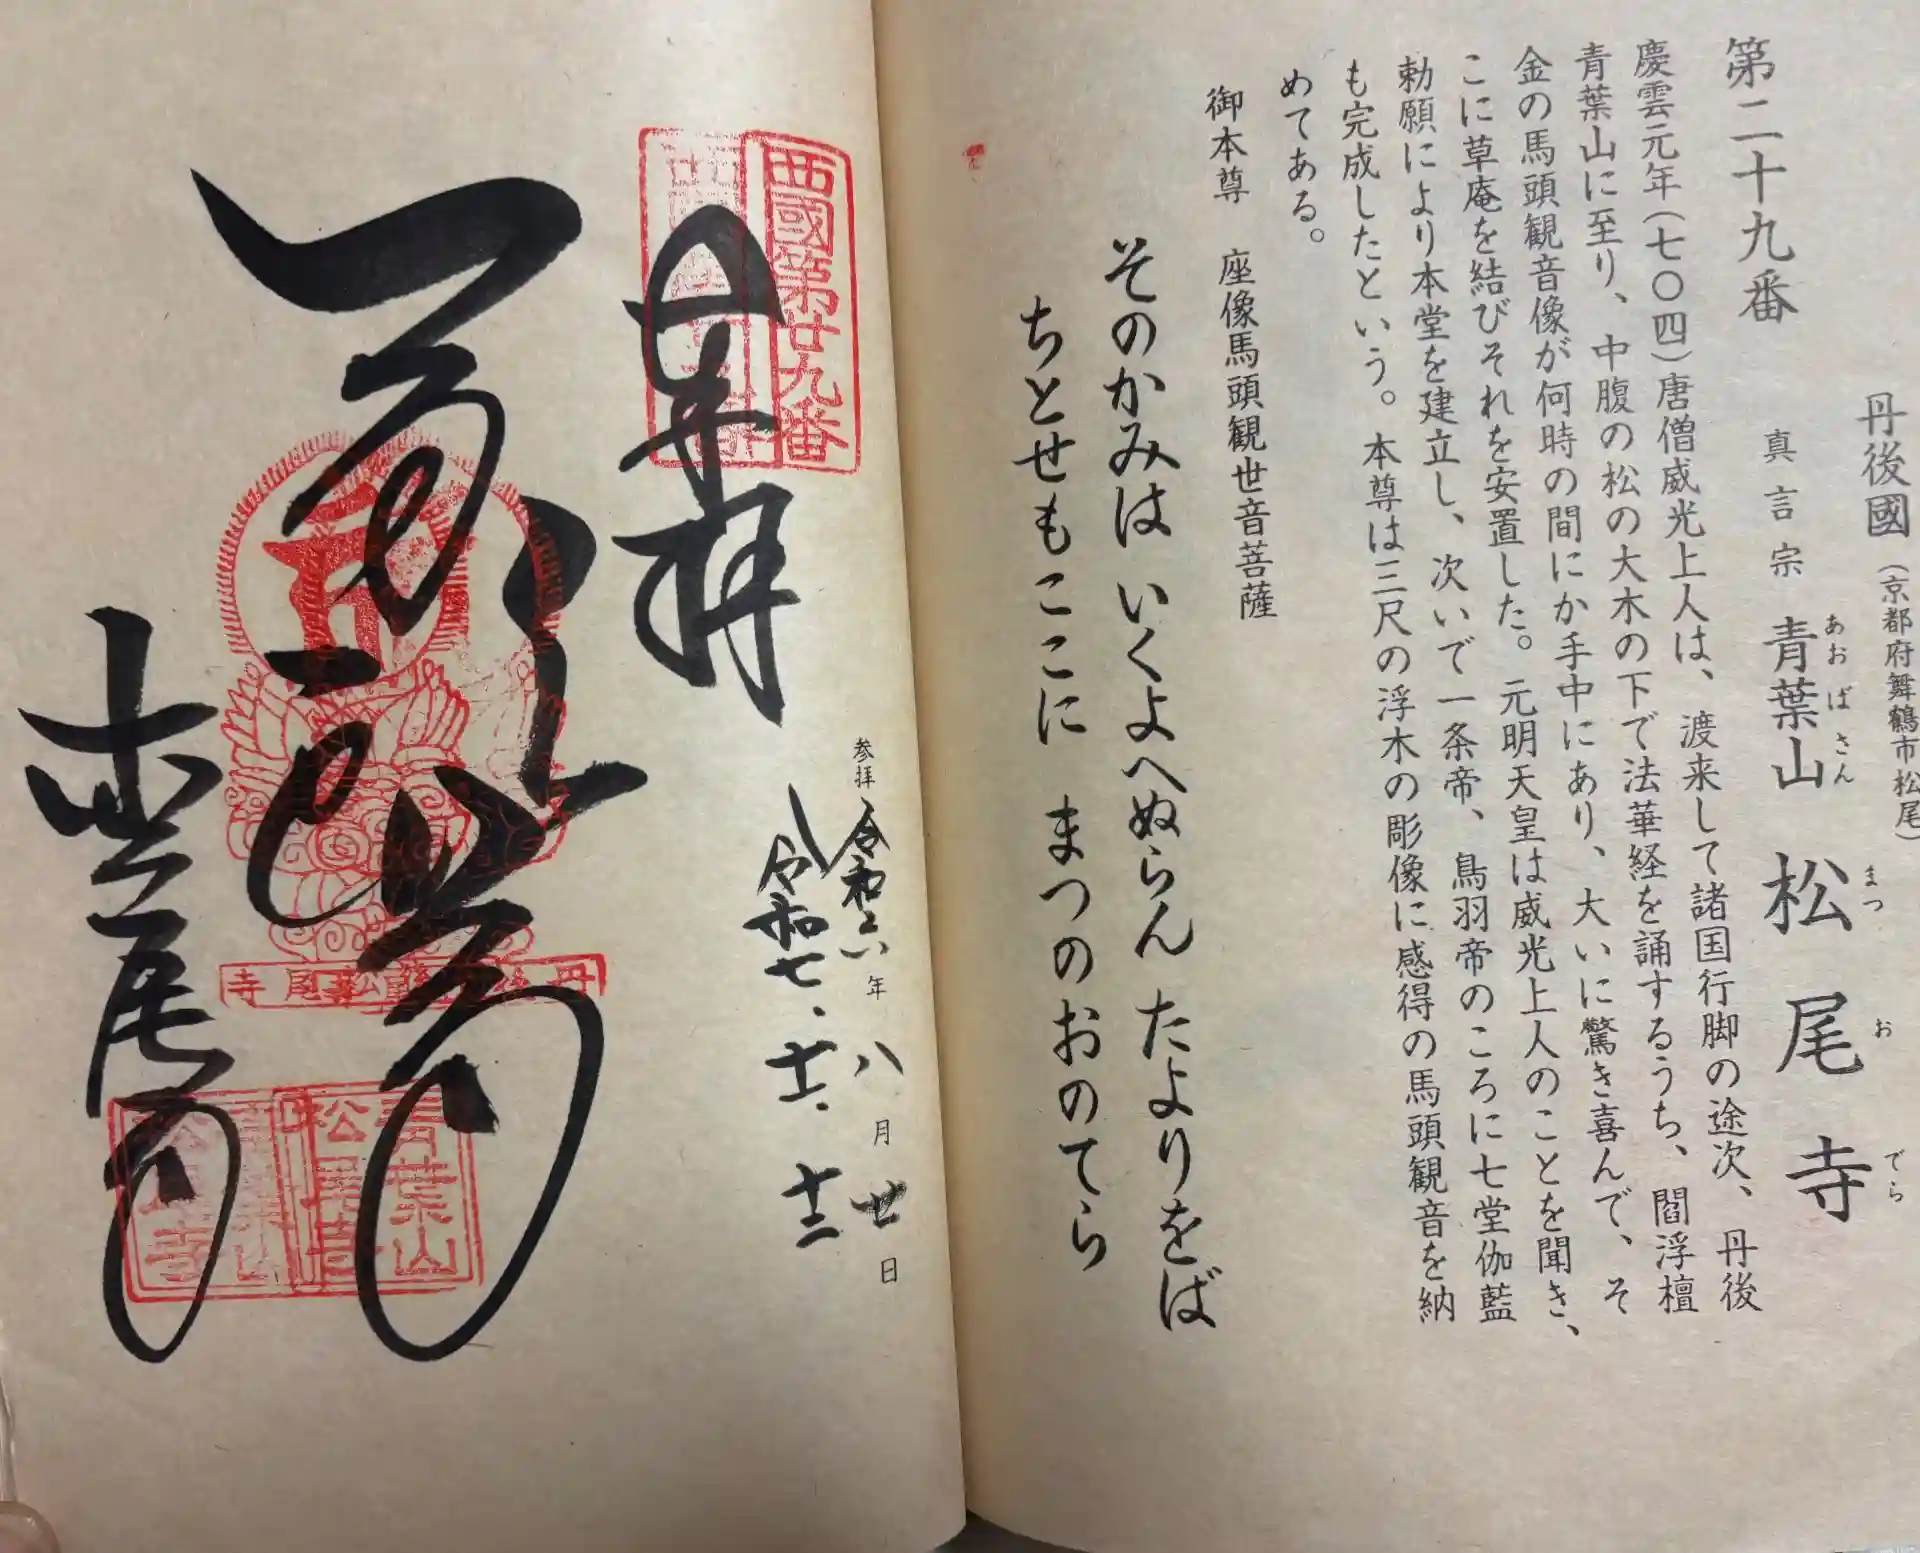 丹後國(京都府舞鶴市松尾)
第二十九番 真言宗 青葉山 松尾寺
あおばさん まつおでら
慶雲元年(七〇四)唐僧威光上人は、渡来して諸国行脚の途次、丹後
青葉山に至り、中腹の松の大木の下で法華経を誦するうち、閻浮檀
金の馬頭観音像が何時の間にか手中にあり、大いに驚き喜んで、そ
こに草庵を結びそれを安置した。元明天皇は威光上人のことを聞き、
勅願により本堂を建立し、次いで一条帝、鳥羽帝のころに七堂伽藍
も完成したという。本尊は三尺の浮木の彫像に感得の馬頭観音を納
めてある。
御本尊 座像馬頭観世音菩薩
そのかみは いくよへぬらん たよりをば
ちとせもここに まつのおのてら
西國第廿九番
奉拝
参拝 令和六年八月廿日
令和七、十一、十三
松尾寺
青葉山
松尾寺